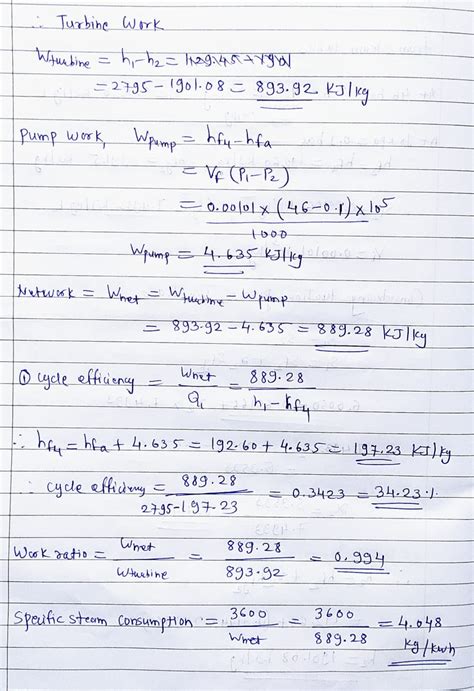 ∴ Turbine Work
Wturbine = h1-h2 =
= 2795 - 1901.08 = 893.92 KJ/kg
Pump Work, Wpump = hf4-hfa
= Vf (P1-P2)
= 0.00101 × (46-0.1) × 10^5 / 1000
Wpump = 4.635 KJ/kg
Network = Wnet = Wturbine - Wpump
= 893.92 - 4.635 = 889.28 KJ/kg
① Cycle efficiency = Wnet / Q1 = 889.28 / h1 - hf4
∴ hf4 = hfa + 4.635 = 192.60 + 4.635 = 197.23 KJ/kg
∴ cycle efficiency = 889.28 / 2795-197.23 = 0.3423 = 34.23 %
Work ratio = Wnet / Wturbine = 889.28 / 893.92 = 0.994
Specific steam Consumption = 3600 / Wnet = 3600 / 889.28 = 4.048 kg/kwh